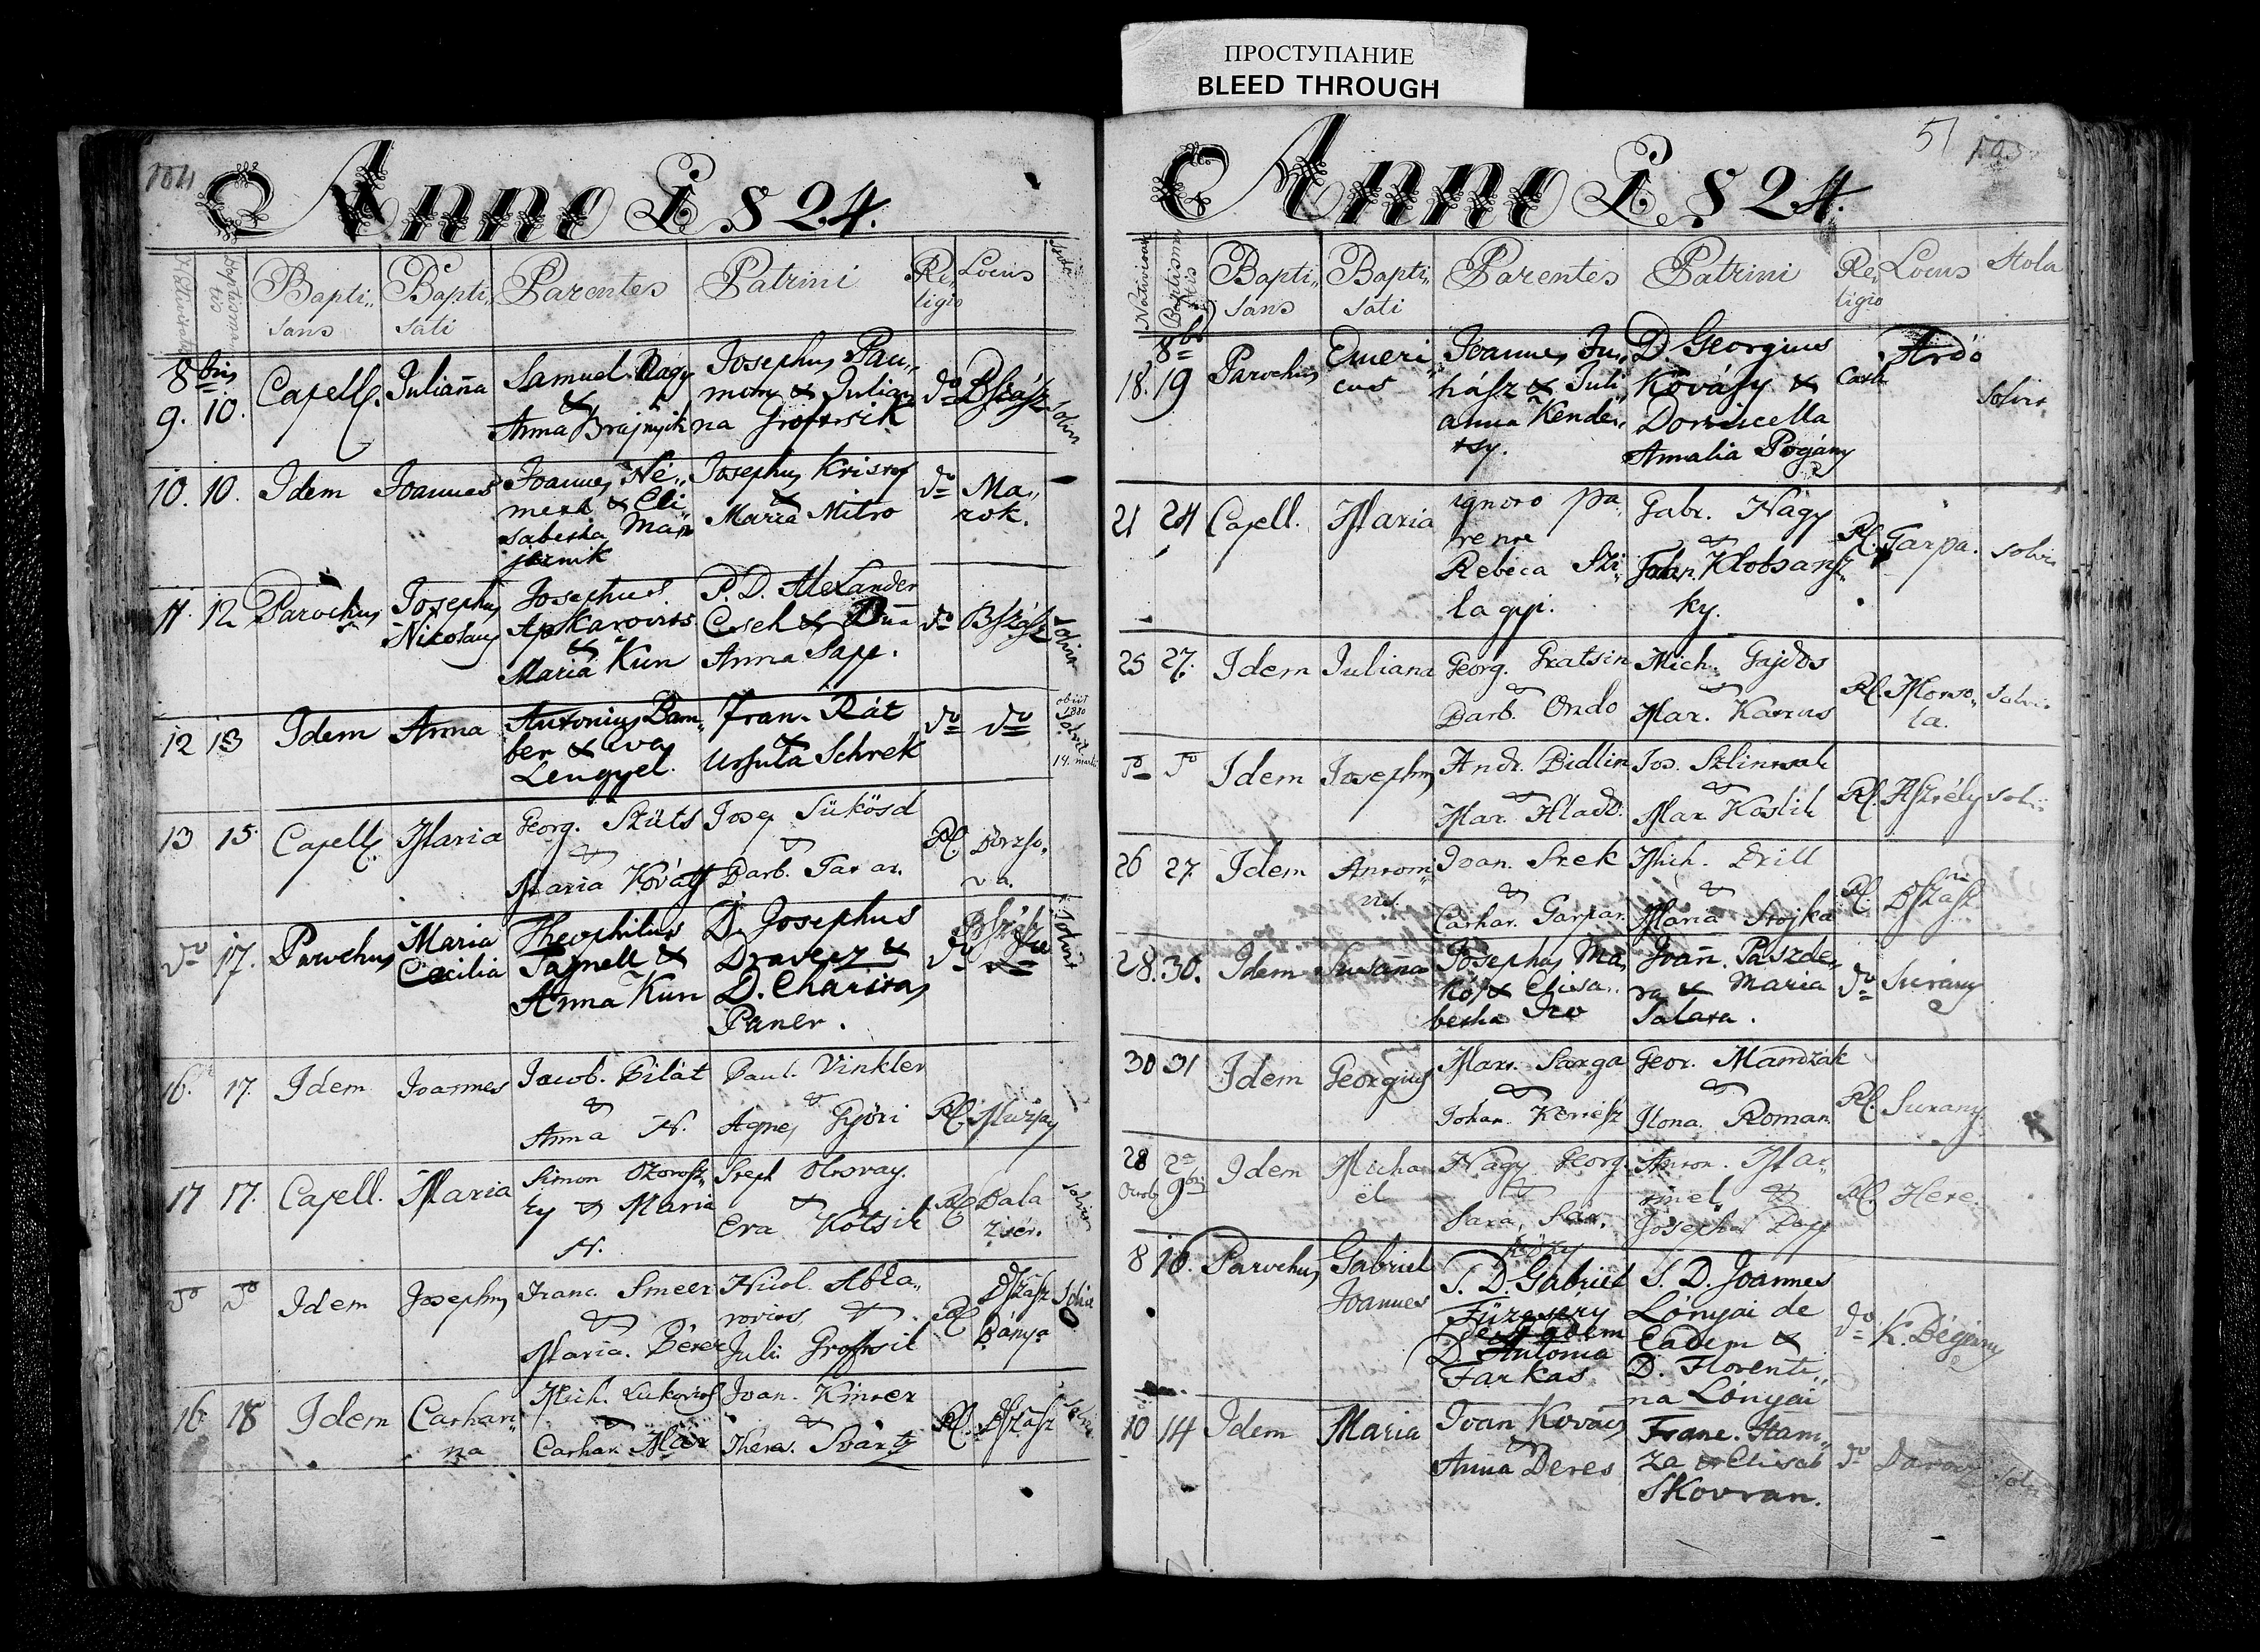 ПРОСТУПАНИЕ
BLEED THROUGH
104
Anno 1824.
Baptisma
tis
Bapti„
sans
Bapti„
sati
Parentes
Patrini
Re„
ligio
Locus
Stola
8bris
9. 10. Capell. Julianna
Samuel Nagy
&
Anna
Josephus Pau„
& Julian
na
do BSzász Solvit
10. 10. Idem Joannes
Joannes Né„
meth & Eli
sabetha
Josephus Kristof
&
Maria Mitro
do Ma„
rok.
11. 12 Parochus Josephus
Nicolaus
Josephus
Apkarovits
&
Maria Kun
P. D. Alexander
Cseh & Dna
Anna Sapp.
do BSzász Solvit
12 13 Idem Anna
Antonius Bam„
ber & Eva
Lengyel.
Fran. Rát
&
Ursula Schrék
do do
obiit
1830
Solvit
14. martii
13 15. Capell. Maria
Georg. Szüts
&
Maria Kováts
Josep Sükösd
&
Barb. Tatar.
RC. Borzso„
va.
do 17. Parochus Maria
Cecilia
Theophilus
Tajnell &
Anna Kun
D. Josephus
Dravecz &
D. Charitas
Paner.
do BSzász Solvit
16. 17. Idem Joannes
Jacob. Pilát
&
Anna N.
Paul. Vinkler
&
Agnes Györi
RC. Muzsay
17 17. Capell. Maria
Simon Ozorosz„
ky & Maria
N.
Steph Olosvay.
&
Eva Kotsik
RC Bala
zsér. Solvit
do do Idem Josephus
Franc Smeer
&
Maria. Bérer
Nicol. Abla„
rovics &
Juli. Groftsik
RC BSzász
Bánya Solvit
16. 18 Idem Cathari„
na
Mich. Lukovics
&
Cathar. Mar
Joan. Kintzer
&
Theres. Svartz
RC. BSzász Solvit
51 105
Anno 1824.
Nativitatis
Baptisma
tis
Bapti„
sans
Bapti„
sati
Parentes
Patrini
Re„
ligio
Locus
Stola
8br
18. 19 Parochus Emeri
cus
Joannes Ju„
hász & Juli
anna Kende„
resy.
D. Georgius
Kovássy &
Domicella
Amalia Pogány
Cath Ardó Solvit
21 24 Capell. Maria
ignoto pa„
rente
Rebeca Szi„
lagyi.
Gabr. Nagy
&
Johan. Klobsansz„
ky.
RC. Tarpa. Solvit
25 27. Idem Juliana
Georg. Gratsin
&
Barb. Ondo
Mich. Gajdos
&
Mar. Karus
RC. Honso„
la. Solvit
do do Idem Josephus
Andr. Bidlin
&
Mar. Hlado.
Jos. Szlintsak
&
Mar. Koslik
RC. Aszély solvit
26 27. Idem Antoni„
us.
Joan. Stek
&
Cathar. Gaspar.
Mich. Drill
&
Maria Stojka
RC. BSzász
28. 30. Idem Susanna
Josephus Ma„
kos & Elisa„
betha
Joan. Paszde„
& Maria
Salata.
do Surány
30 31 Idem Georgius
Mart. Sarga
&
Johan. Kertész
Geor. Mandzák
&
Ilona. Roman
RC. Surany
28 2a
Octob 9bris Idem Micha
ël
Nagy Georg.
&
Sara, Sár„
közy
Anton. Mar„
&
Josepha Papp
RC. Hete.
8 10. Parochus Gabriel
Joannes
S. D. Gabriel
Füzesery
de Eadem
D. Antonia
Farkas
S. D. Joannes
Lónyai de
Eadem &
D. Florenti„
na Lónyai
do K. Dégány
10 14 Idem Maria
Ioan Kovacs
&
Anna Deres
Franc. Ham„
za & Elisab
Skovran.
do Darócz Solvit